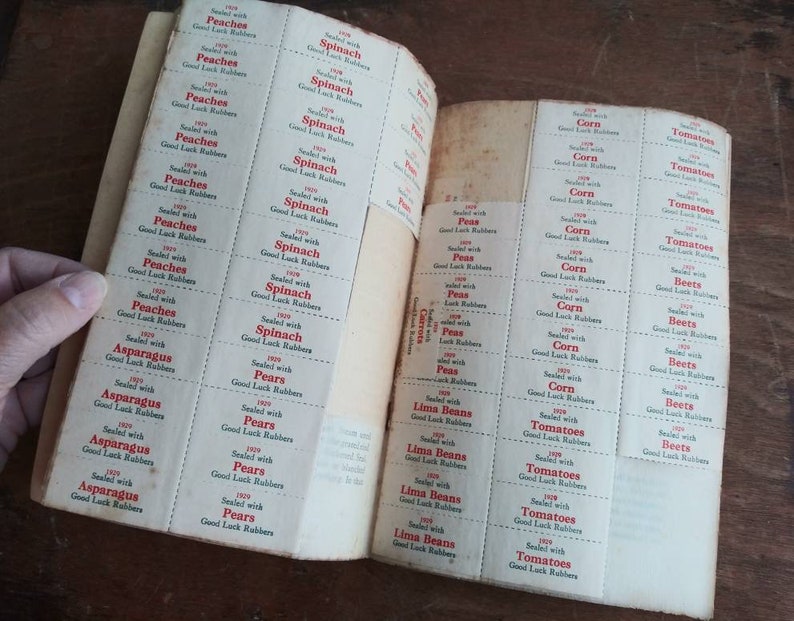 1929
Sealed with
Peaches
Good Luck Rubbers
1929
Sealed with
Peaches
Good Luck Rubbers
1929
Sealed with
Peaches
Good Luck Rubbers
1929
Sealed with
Peaches
Good Luck Rubbers
1929
Sealed with
Peaches
Good Luck Rubbers
1929
Sealed with
Peaches
Good Luck Rubbers
1929
Sealed with
Peaches
Good Luck Rubbers
1929
Sealed with
Peaches
Good Luck Rubbers
1929
Sealed with
Asparagus
Good Luck Rubbers
1929
Sealed with
Asparagus
Good Luck Rubbers
1929
Sealed with
Asparagus
Good Luck Rubbers
1929
Sealed with
Asparagus
Good Luck Rubbers
1929
Sealed with
Spinach
Good Luck Rubbers
1929
Sealed with
Spinach
Good Luck Rubbers
1929
Sealed with
Spinach
Good Luck Rubbers
1929
Sealed with
Spinach
Good Luck Rubbers
1929
Sealed with
Spinach
Good Luck Rubbers
1929
Sealed with
Spinach
Good Luck Rubbers
1929
Sealed with
Spinach
Good Luck Rubbers
1929
Sealed with
Spinach
Good Luck Rubbers
1929
Sealed with
Pears
Good Luck Rubbers
1929
Sealed with
Pears
Good Luck Rubbers
1929
Sealed with
Pears
Good Luck Rubbers
1929
Sealed with
Pears
Good Luck Rubbers
Steam until
grated rind
blanched
In that
Sealed with
Peas
Good Luck Rubbers
1929
Sealed with
Peas
Good Luck Rubbers
1929
Sealed with
Peas
Good Luck Rubbers
1929
Sealed with
Peas
Luck Rubbers
1929
Sealed with
Peas
Luck Rubbers
1929
Sealed with
Carrots
Good Luck Rubbers
Sealed with
Lima Beans
Good Luck Rubbers
1929
Sealed with
Lima Beans
Good Luck Rubbers
1929
Sealed with
Lima Beans
Good Luck Rubbers
1929
Sealed with
Lima Beans
Good Luck Rubbers
1929
Sealed with
Corn
Good Luck Rubbers
1929
Sealed with
Corn
Good Luck Rubbers
1929
Sealed with
Corn
Good Luck Rubbers
1929
Sealed with
Corn
Good Luck Rubbers
1929
Sealed with
Corn
Good Luck Rubbers
1929
Sealed with
Corn
Good Luck Rubbers
1929
Sealed with
Corn
Good Luck Rubbers
1929
Sealed with
Corn
Good Luck Rubbers
1929
Sealed with
Tomatoes
Good Luck Rubbers
1929
Sealed with
Tomatoes
Good Luck Rubbers
1929
Sealed with
Tomatoes
Good Luck Rubbers
1929
Sealed with
Tomatoes
Good Luck Rubbers
1929
Sealed with
Tomatoes
Good Luck Rubbers
1929
Sealed with
Tomatoes
Good Luck Rubbers
1929
Sealed with
Tomatoes
Good Luck Rubbers
1929
Sealed with
Tomatoes
Good Luck Rubbers
1929
Sealed with
Beets
Good Luck Rubbers
1929
Sealed with
Beets
Good Luck Rubbers
1929
Sealed with
Beets
Good Luck Rubbers
1929
Sealed with
Beets
Good Luck Rubbers
1929
Sealed with
Beets
Good Luck Rubbers